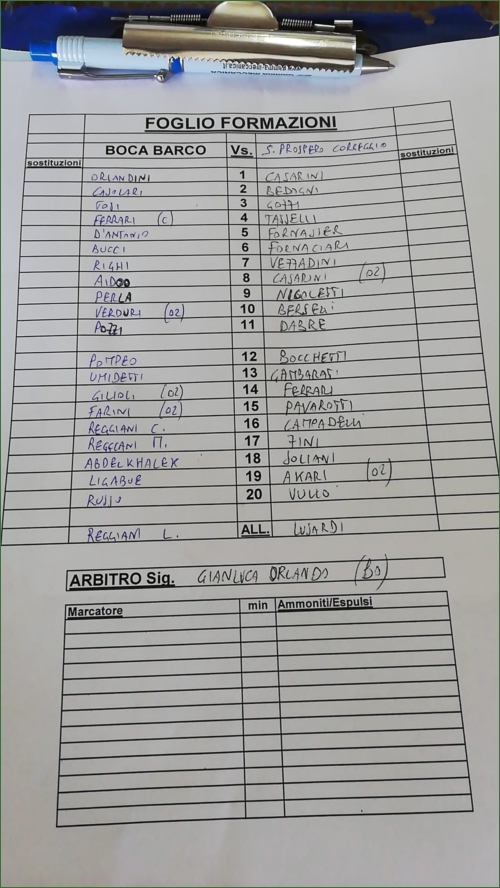 FOGLIO FORMAZIONI
BOCA BARCO Vs. S. PROSPERO CORREGGIO
sostituzioni sostituzioni
ORLANDINI 1 CASARINI
CASOLARI 2 BEDOGNI
TOSI 3 GOZZI
FERRARI (C) 4 TASSELLI
D'ANTONIO 5 FORNASIER
BUCCI 6 FORNACIARI
RIGHI 7 VEZZADINI
AIDOO 8 CASARINI (02)
PERLA 9 NIGOLETTI
VERDURI (02) 10 BERSELLI
POZZI 11 DABRE
POMPEO 12 BOCCHETTI
UMIDETTI 13 GAMBARATI
GILIOLI (02) 14 FERRARI
FARINI (02) 15 PAVAROTTI
REGGIANI C. 16 CAMPADELLI
REGGIANI M. 17 FINI
ABDELKHALEK 18 SOLIANI
LIGABUE 19 AKARI (02)
RUSSO 20 VULLO
REGGIANI L. ALL. LUSARDI
ARBITRO Sig. GIANLUCA ORLANDO (BO)
Marcatore min Ammoniti/Espulsi